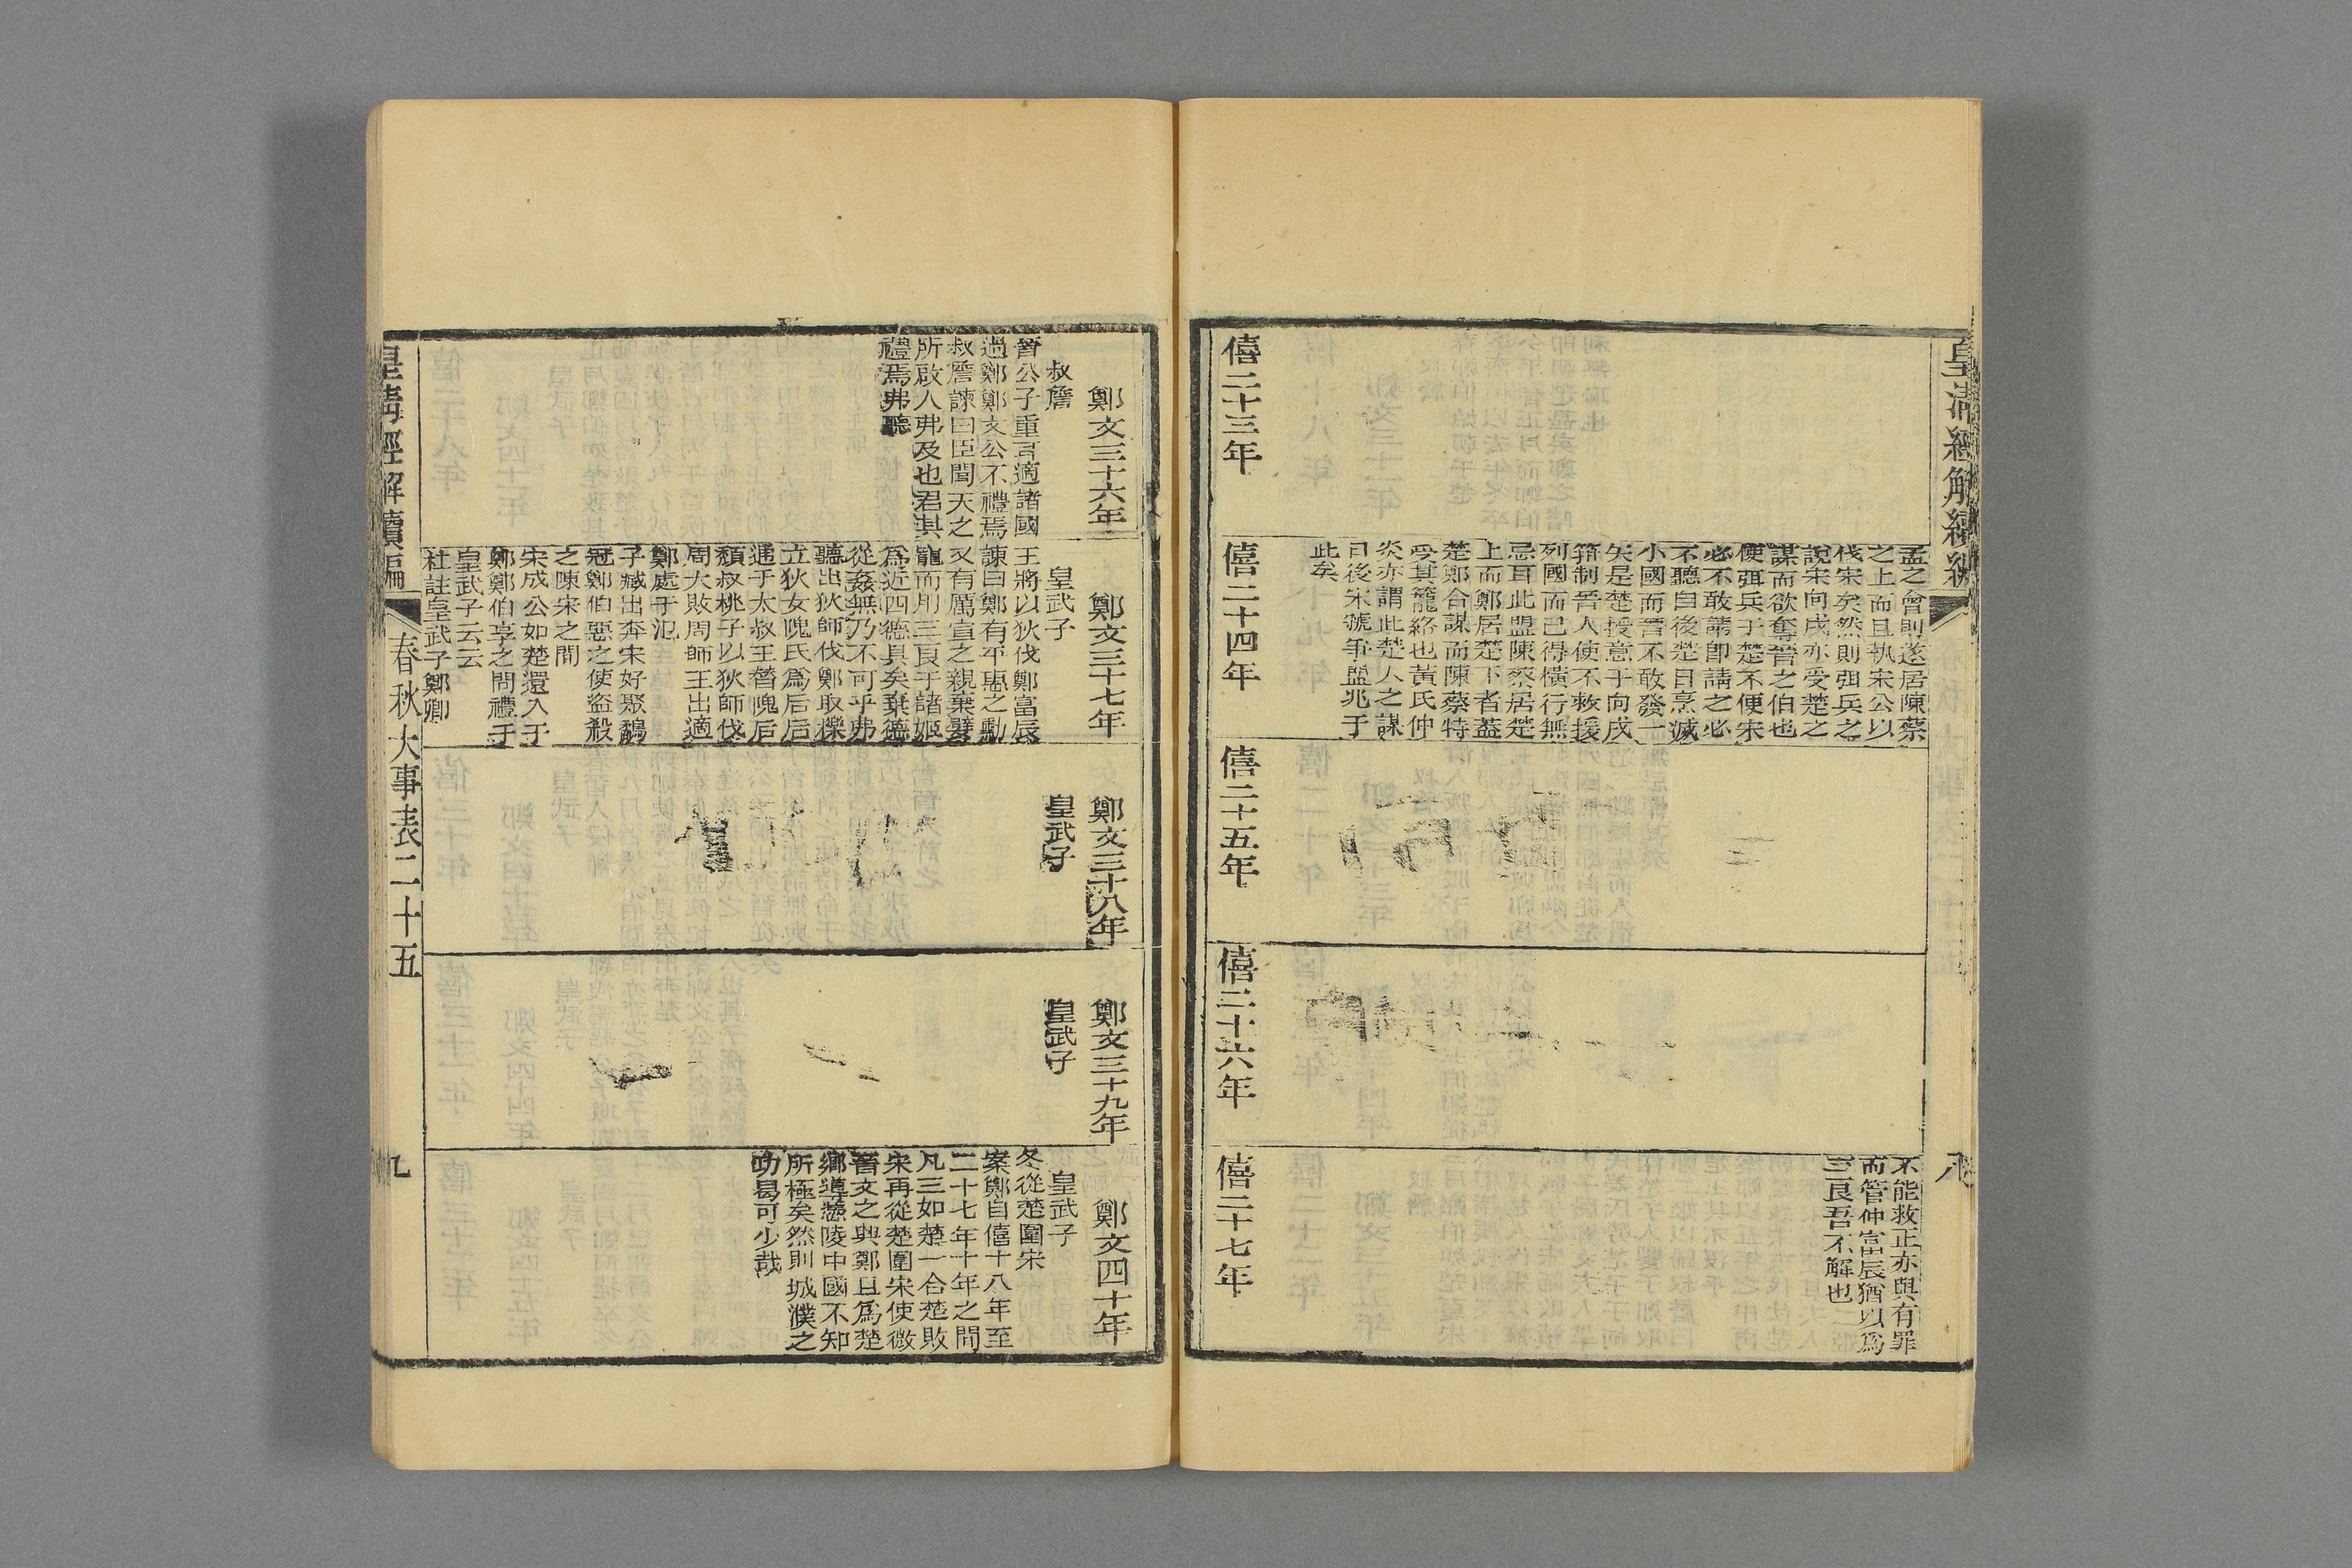 皇清經解續編
八
孟之會則遂居陳蔡
之上而且執宋公以
伐宋矣然則弭兵之
說宋向戌亦受楚之
謀而欲奪晉之伯也
便弭兵于楚不便宋
必不敢請卽請之必
不聽自後楚日烹滅
小國而晉不敢發一
矢是楚援意于向戌
箝制晉人使不救援
列國而已得橫行無
忌耳此盟陳蔡居楚
上而鄭居楚下者蓋
楚鄭合謀而陳蔡特
受其籠絡也黃氏仲
炎亦謂此楚人之謀
日後宋虢爭盟兆于
此矣
不能救正亦與有罪
而管仲富辰猶以爲
三良吾不解也
僖二十三年
僖二十四年
僖二十五年
僖二十六年
僖二十七年
鄭文三十六年
叔詹
晉公子重耳適諸國
過鄭鄭文公不禮焉
叔詹諫曰臣聞天之
所啟人弗及也君其
禮焉弗聽
鄭文三十七年
皇武子
王將以狄伐鄭富辰
諫曰鄭有平惠之勳
又有厲宣之親棄嬖
寵而用三良于諸姬
爲近四德具矣棄德
從姦無乃不可乎弗
聽出狄師伐鄭取櫟
立狄女隗氏爲后后
通于太叔王替隗后
頹叔桃子以狄師伐
周大敗周師王出適
鄭處于氾
子臧出奔宋好聚鷸
冠鄭伯惡之使盜殺
之陳宋之間
宋成公如楚還入于
鄭鄭伯享之問禮于
皇武子云云
杜註皇武子鄭卿
鄭文三十八年
皇武子
鄭文三十九年
皇武子
鄭文四十年
皇武子
冬從楚圍宋
案鄭自僖十八年至
二十七年十年之間
凡三如楚一合楚敗
宋再從楚圍宋使微
晉文之興鄭且爲楚
鄉導憑陵中國不知
所極矣然則城濮之
功曷可少哉
皇清經解續編
春秋大事表二十五
九